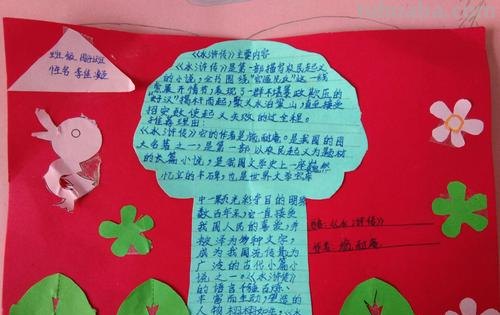 班级
姓名
《水浒传》主要内容
《水浒传》是第一部描写农民起义
的小说,全书围绕"官逼民反"这一线
索展开情节,表现了一群不堪暴政欺压的
"好汉"揭竿而起,聚义水泊梁山,直至接受
招安致使起义失败的全过程。
推荐理由:
《水浒传》它的作者是施耐庵。是我国的四
大名著之一,是第一部以农民起义为题材
的长篇小说,是我国文学史上一座巍然
屹立的丰碑,也是世界文学宝库
中一颗光彩夺目的明珠
数百年来,它一直接受
我国人民的喜爱,并
被译为多种文字,
成为我国流传最为
广泛的古代小篇小
说之一。《水浒传》
的语言千锤百炼、
丰富而生动,塑造的
人物栩栩如生,《水
书名:《水浒传》
作者:施耐庵